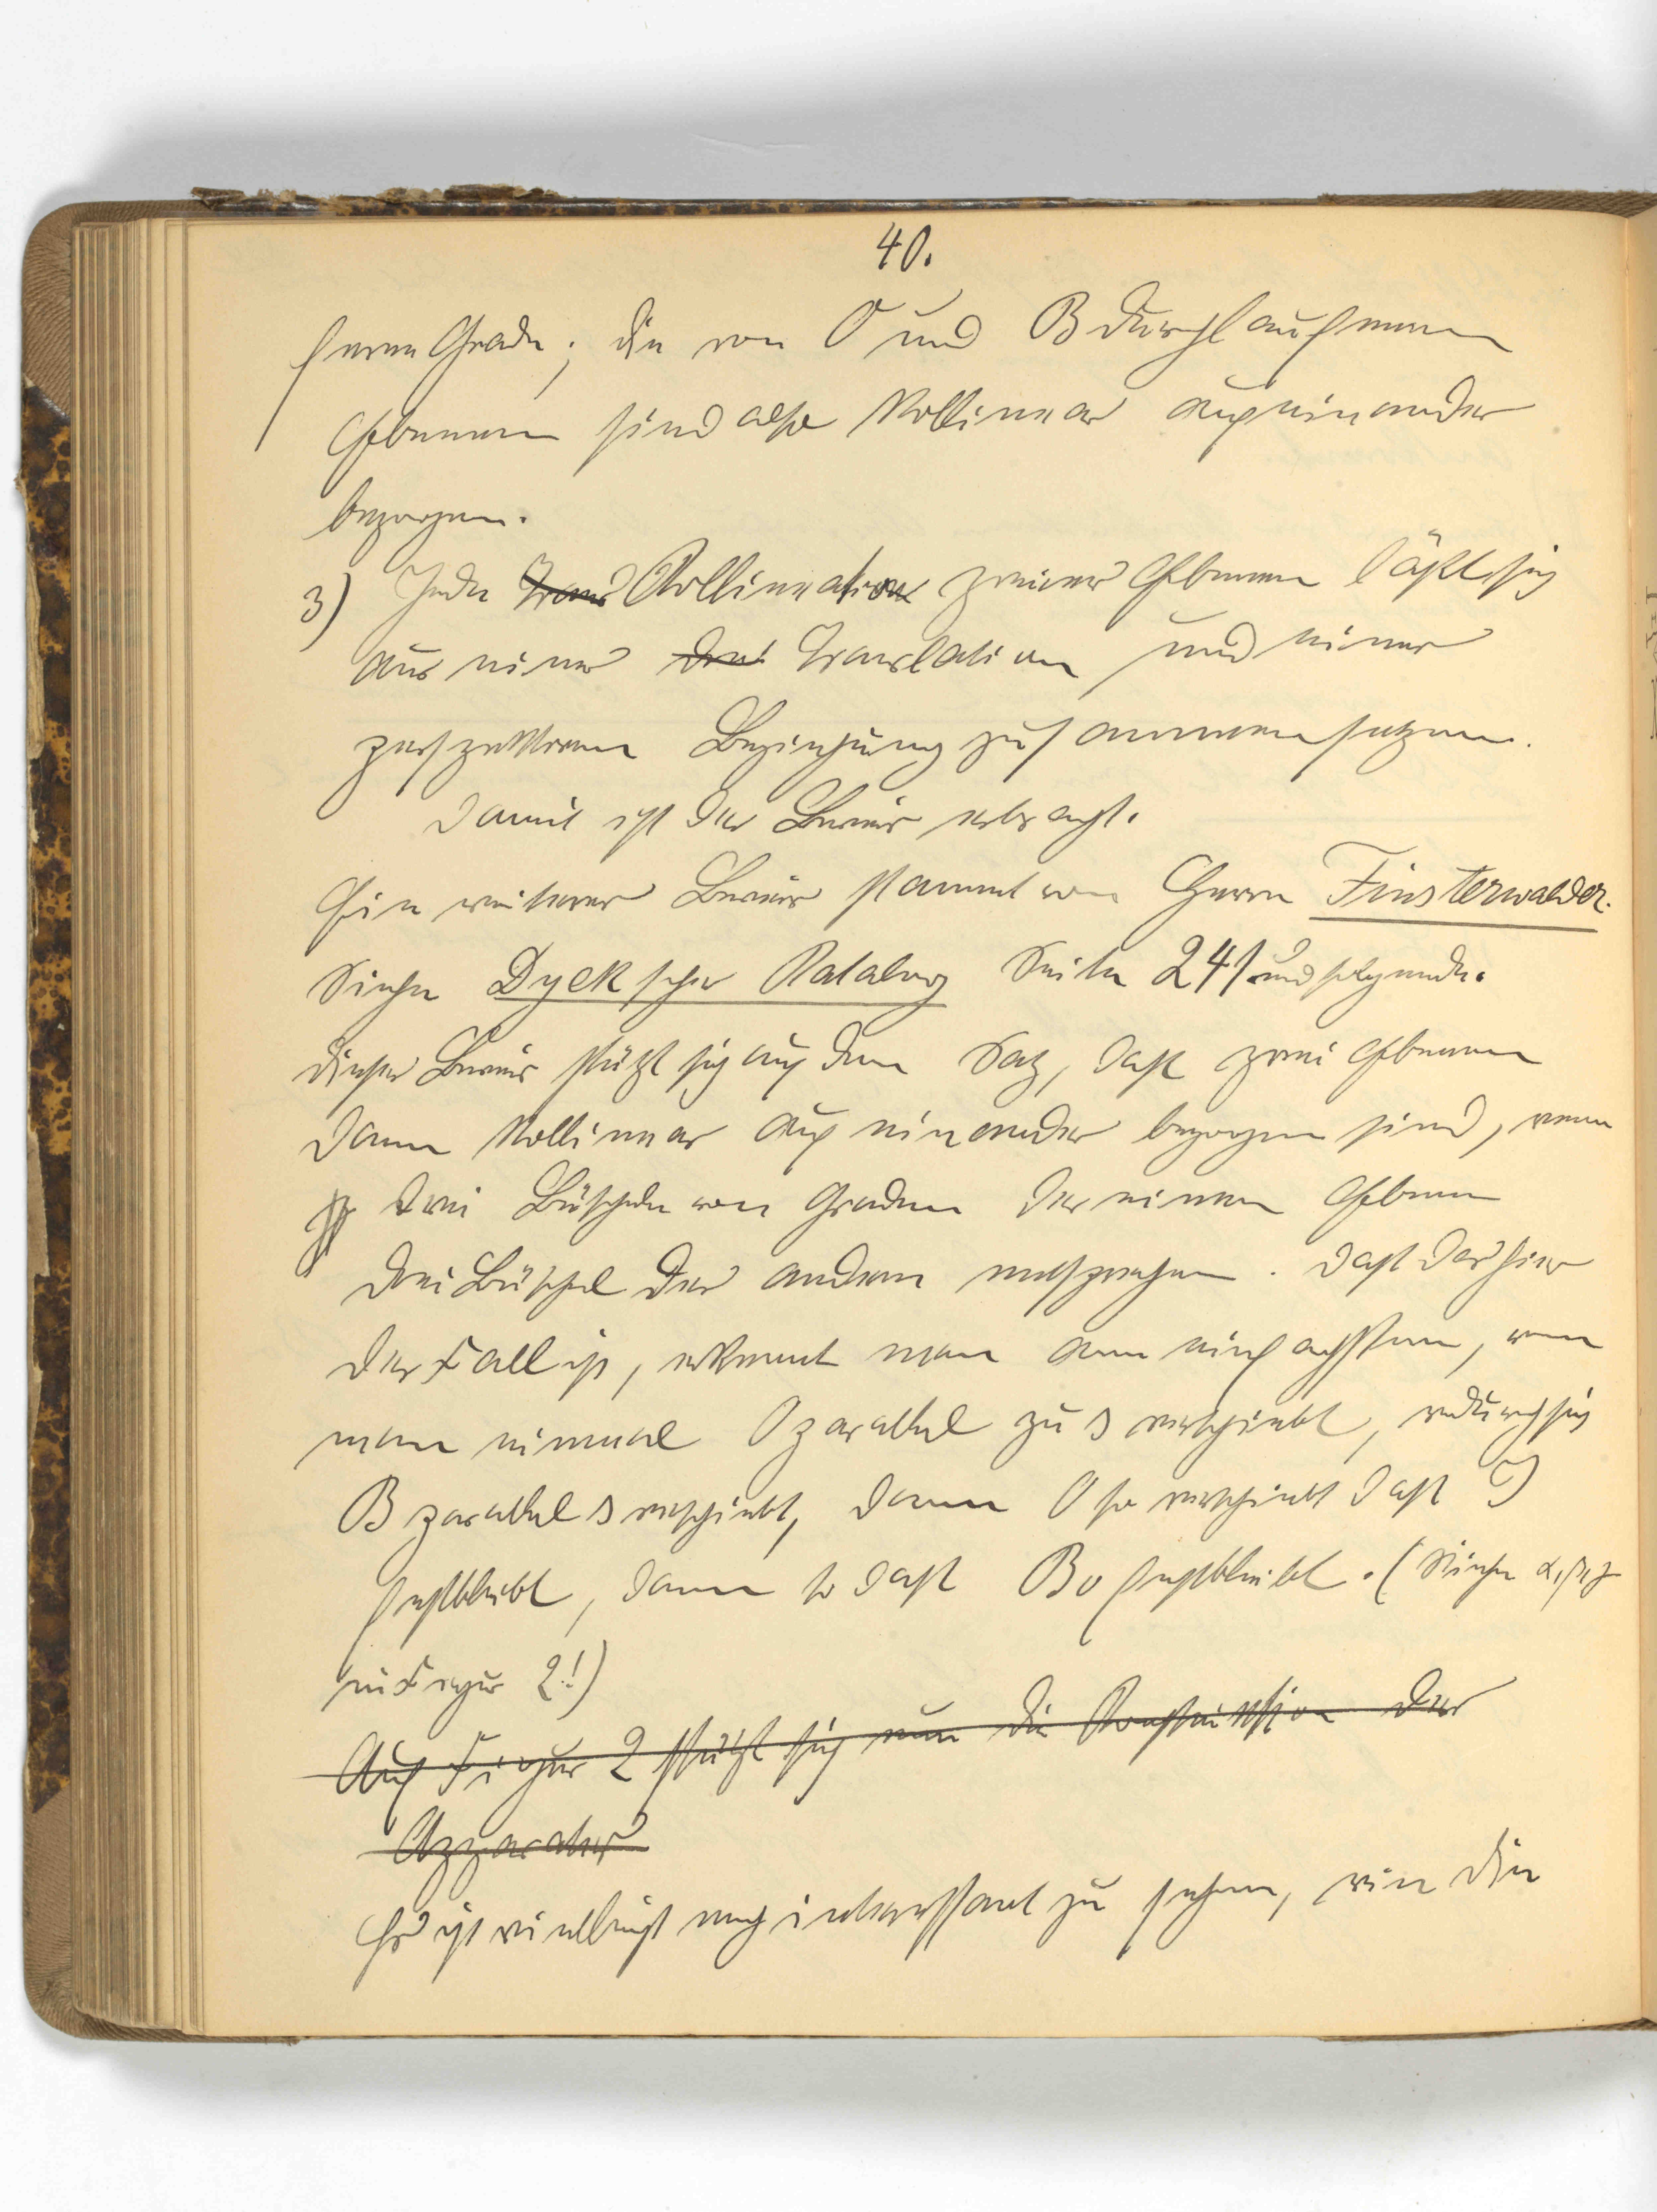 40.
ferne Grade; die von O und B durchlaufenen
Ebenen sind also kollinear aufeinander
bezogen.
3) Jede Trans Kollineation zweier Ebenen läßt sich
aus einer drei Translation und einer
perspektiven Beziehung zusammensetzen.
Damit ist der Beweis erbracht.
Ein weiterer Beweis stammt von Herrn Finsterwalder.
Siehe Dyck scher Katalog Seite 241 und folgende.
Dieser Beweis stützt sich auf den Satz, daß zwei Ebenen
dann kollinear auf einander bezogen sind, wenn
drei Büscheln von Graden der einen Ebene
drei Büschel der andern entsprechen. Daß das hier
der Fall ist, erkennt man am einfachsten, wenn
man einmal O parallel zu s verschiebt, wodurch sich
B parallel s verschiebt, dann O so verschiebt daß
festbleibt, dann so daß Bo festbleibt. (Siehe α, β, γ
in Figur 2!)
Auf Figur 2 stützt sich nun die Konstruktion des
Apparates
Es ist vielleicht noch interessant zu sehen, wie die